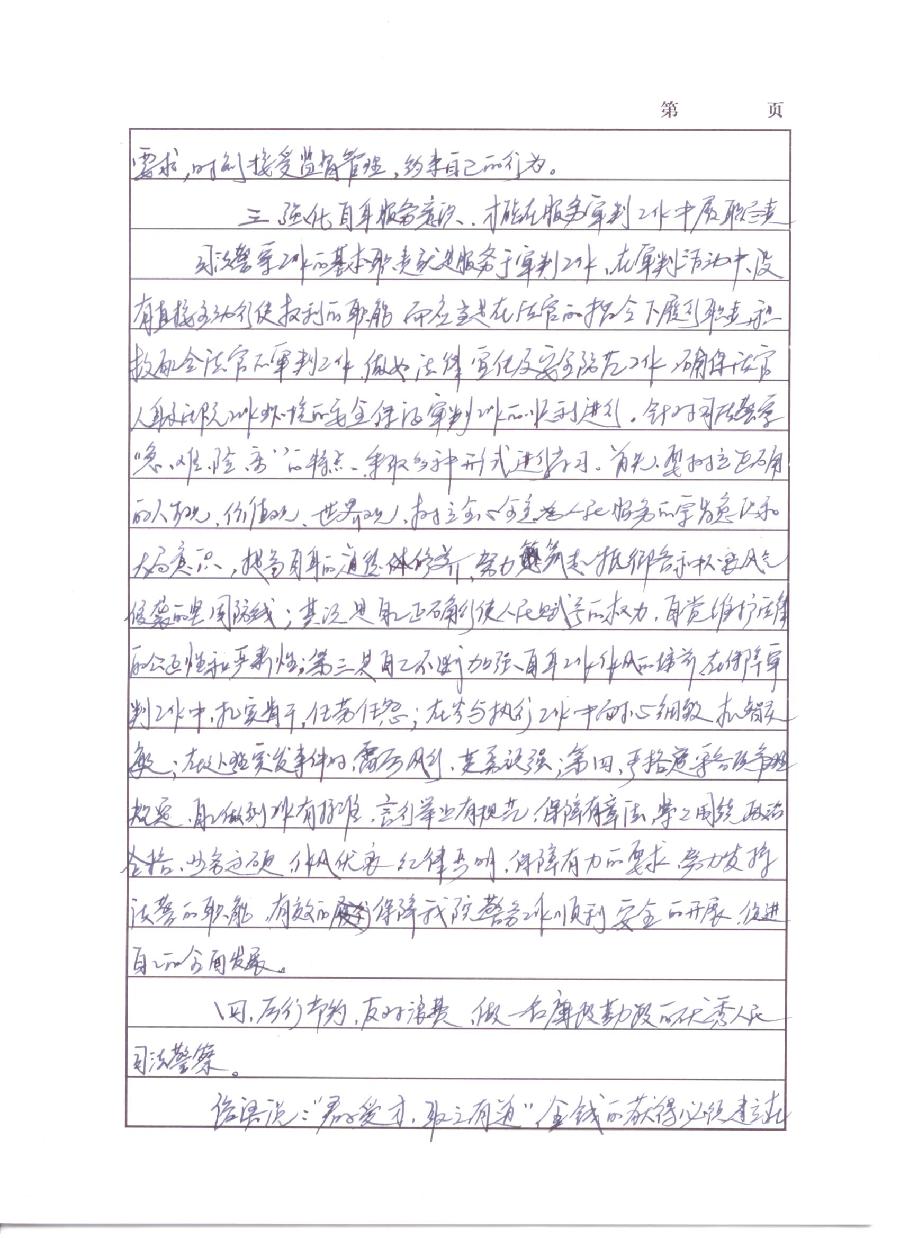 第 页
要求,时刻接受监督管理,约束自己的行为。
三、强化自身服务意识、才能在服务审判工作中履职尽责
司法警察工作的基本职责就是服务于审判工作,在审判活动中,没
有直接主动行使权利的职能,而应当是在法官的指令下履行职责,积
极配合法官的审判工作,做好法律宣传及安全防范工作,确保法官
人身和工作环境的安全,保证审判工作的顺利进行。针对司法警察
“急、难、险、重”的特点,采取多种形式进行学习。首先,要树立正确
的人生观,价值观、世界观,树立全心全意为人民服务的宗旨意识和
大局意识,提高自身的道德修养,努力筑起抵御各种不良风气
侵袭的坚固防线;其次是自己正确行使人民赋予的权力,自觉维护法律
的公正性和严肃性;第三是自己不断加强自身工作作风的培养,在保障审
判工作中,扎实肯干,任劳任怨;在参与执行工作中耐心细致,机智灵
敏;在处理突发事件时,雷厉风行,英勇顽强;第四,严格遵守各项管理
规定,自己做到工作有标准,言行举止有规范,保障有章法,紧紧围绕政治
合格、业务过硬、作风优良、纪律严明、保障有力的要求,努力发挥
法警的职能,有效的保障我院警务工作顺利安全的开展,促进
自己的全面发展。
四、厉行节约,反对浪费,做一名廉政勤政的优秀人民
司法警察。
俗语说:“君子爱才,取之有道”金钱的获得必须建立在